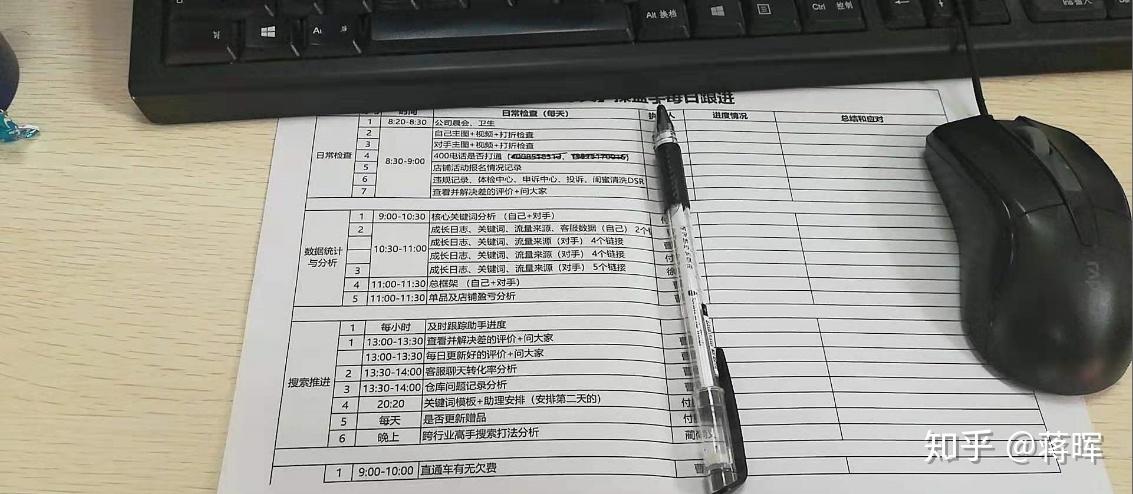 Alt 换档
Ctrl 控制
每日跟进
时间 日常检查（每天） 进度情况 总结和应对
日常检查
1 8:20-8:30 公司晨会、卫生
2 自己主图+视频+打折检查
3 8:30-9:00 对手主图+视频+打折检查
4 400电话是否打通
5 店铺活动报名情况记录
6 违规记录、体检中心、申诉中心、投诉、闺蜜清洗DSR
7 查看并解决差的评价+问大家
数据统计与分析
1 9:00-10:30 核心关键词分析（自己+对手）
2 10:30-11:00 成长日志、关键词、流量来源、客服数据（自己）2个
成长日志、关键词、流量来源（对手）4个链接
成长日志、关键词、流量来源（对手）4个链接
3 成长日志、关键词、流量来源（对手）5个链接
4 11:00-11:30 总框架（自己+对手）
5 11:00-11:30 单品及店铺盈亏分析
搜索推进
1 每小时 及时跟踪助手进度
1 13:00-13:30 查看并解决差的评价+问大家
13:00-13:30 每日更新好的评价+问大家
2 13:30-14:00 客服聊天转化率分析
3 13:30-14:00 仓库问题记录分析
4 20:20 关键词模板+助理安排（安排第二天的）
5 每天 是否更新赠品
6 晚上 跨行业高手搜索打法分析
1 9:00-10:00 直通车有无欠费
知乎 @蒋晖